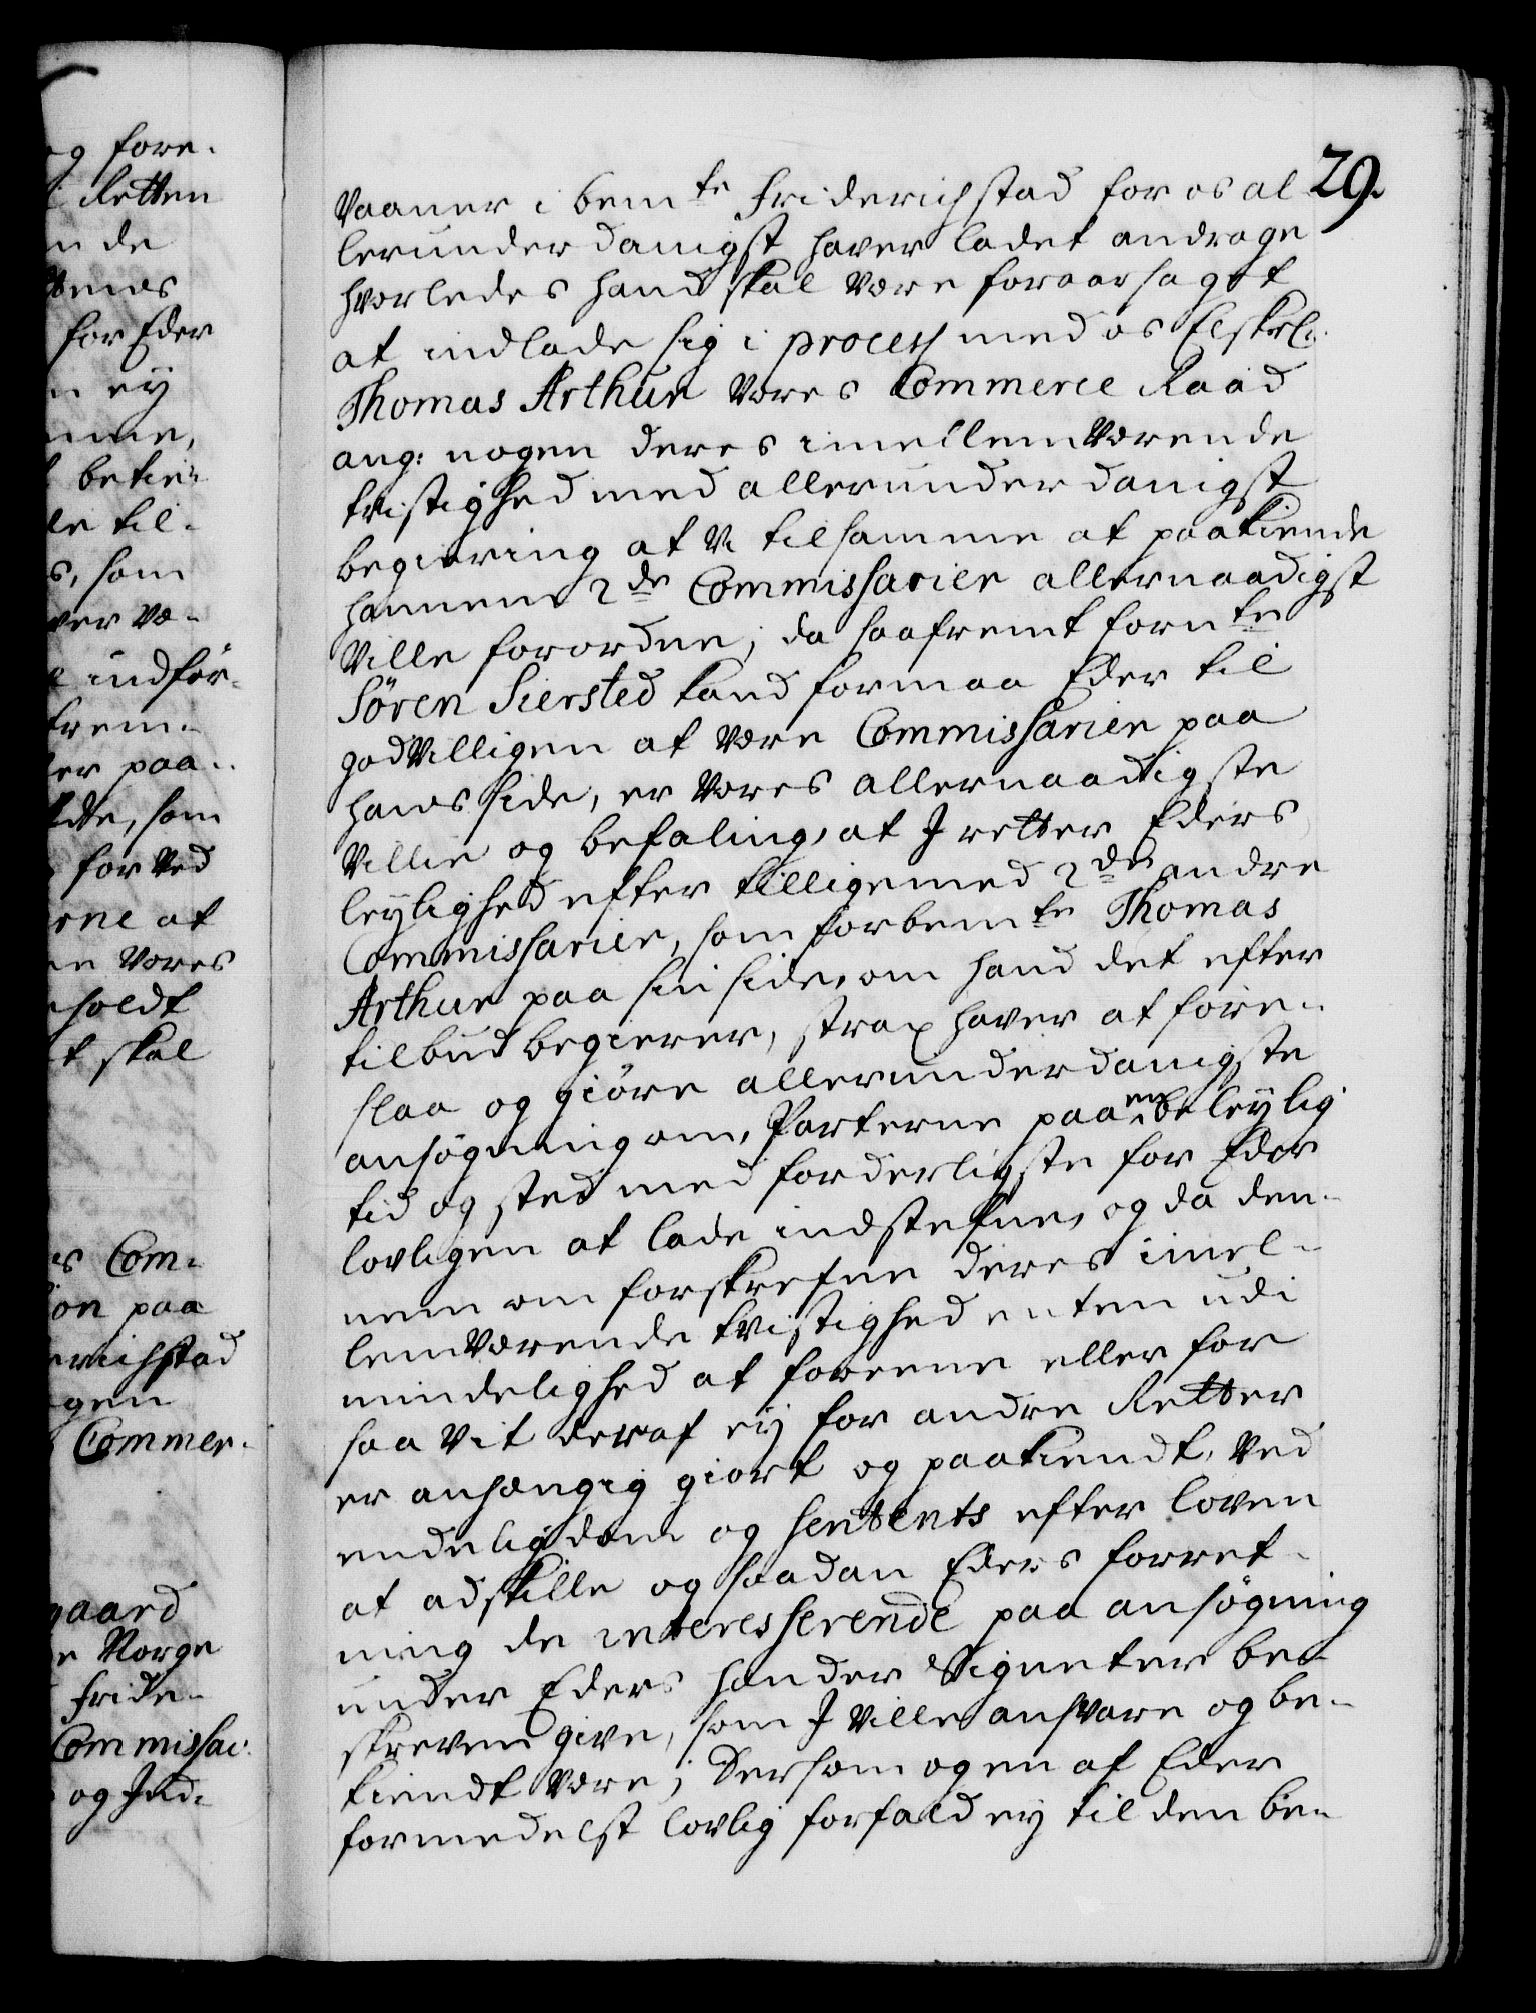 og fore-
i Retten
n de
ttenes
for Eder
n ey
mme,
betie-
le til-
s, som
ver væ-
e indfør-
frem-
er paa-
ldte, som
for Ved
rne at
en Vores
holdt
t skal
es Com-
on paa
erichstad
gen
Commer-
gaard
e Norge
Fride-
Commissai-
og Ind-
29.
Vaaner i bemte Friderichstad for os al
lerunderdanigst haver ladet andrage
hvorledes hand skal være foraarsaget
at indlade sig i process med os Elskel:
Thomas Arthur Vores Commerce Raad
ang: nogen deres imellemværende
tvistighed med allerunderdanigst
begiering at Vi til samme at paakiende
hannem 2de Commissarier allernaadigst
Ville forordne, da saafremt fornte
Søren Siersted kand formaa Eder til
godvilligen at være Commissarier paa
hans side, er Vores allernaadigste
Villie og befaling, at I retter Eders
leylighed efter tilligemed 2de andre
Commissarier, som forbemte Thomas
Arthur paa sin side, om hand det efter
tilbud begierer, strax haver at fore-
slaa og giøre allerunderdanigste
ansøgning om, Parterne paa en beleylig
tid og sted med forderligste for Eder
lovligen at lade indstefne, og da den-
nem om forskrefne deres imel-
lemværende tvistighed enten udi
mindelighed at foreene eller for
saa vit deraf ey for andre Retter
er anhængig giort og paakiendt, Ved
endelig dom og sentents efter loven
at adskille og saadan Eders forret-
ning de interesserende paa ansøgning
under Eders hænder Signeter be-
skreven give, som I Ville ansvare og be-
kiendt være; Dersom ogen af Eder
formedelst lovlig forfald ey til den be-